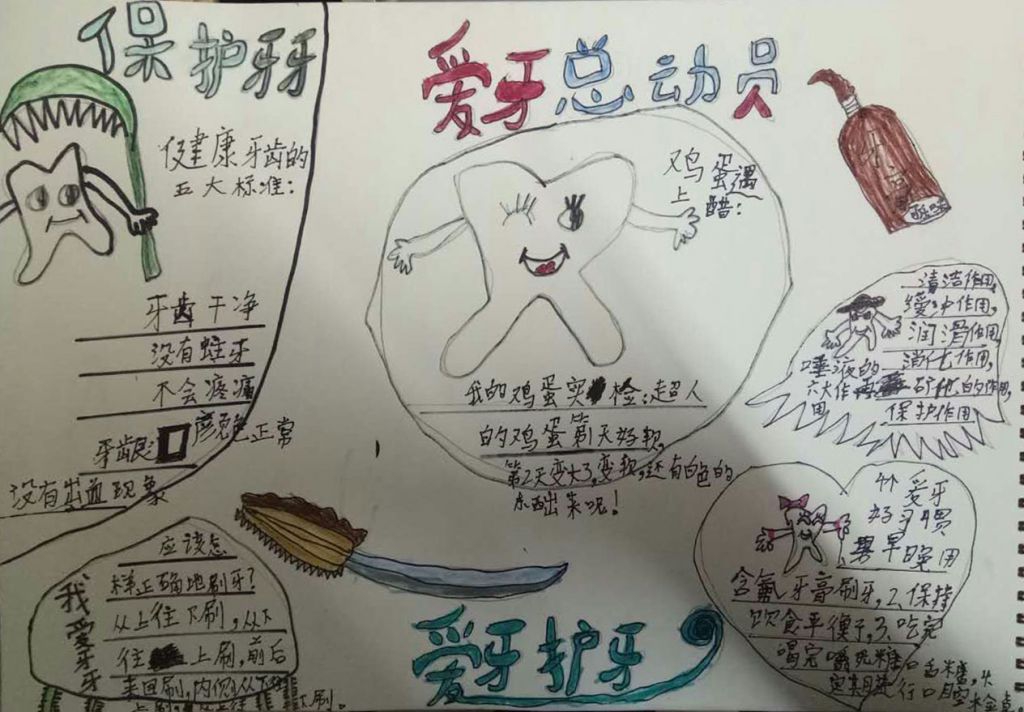 保护牙牙
健康牙齿的
五大标准：
牙齿干净
没有蛀牙
不会疼痛
牙龈颜色正常
没有出血现象
我爱牙牙
应该怎
样正确地刷牙？
从上往下刷，从下
往上刷，前后
来回刷，内侧从下
爱牙总动员
鸡蛋遇
上醋：
我的鸡蛋实检：超人
的鸡蛋第1天好软
第2天变大了，变软，还有白色的
东西出来呢！
爱牙护牙
唾液的
六大作
用
清洁作用，
缓冲作用，
润滑作用
消化作用，
保护作用
爱牙
好习惯
早晚用
含氟牙膏刷牙，2、保持
饮食平衡，3、吃完
喝完嚼口香糖，4、
定期进行口腔检查。